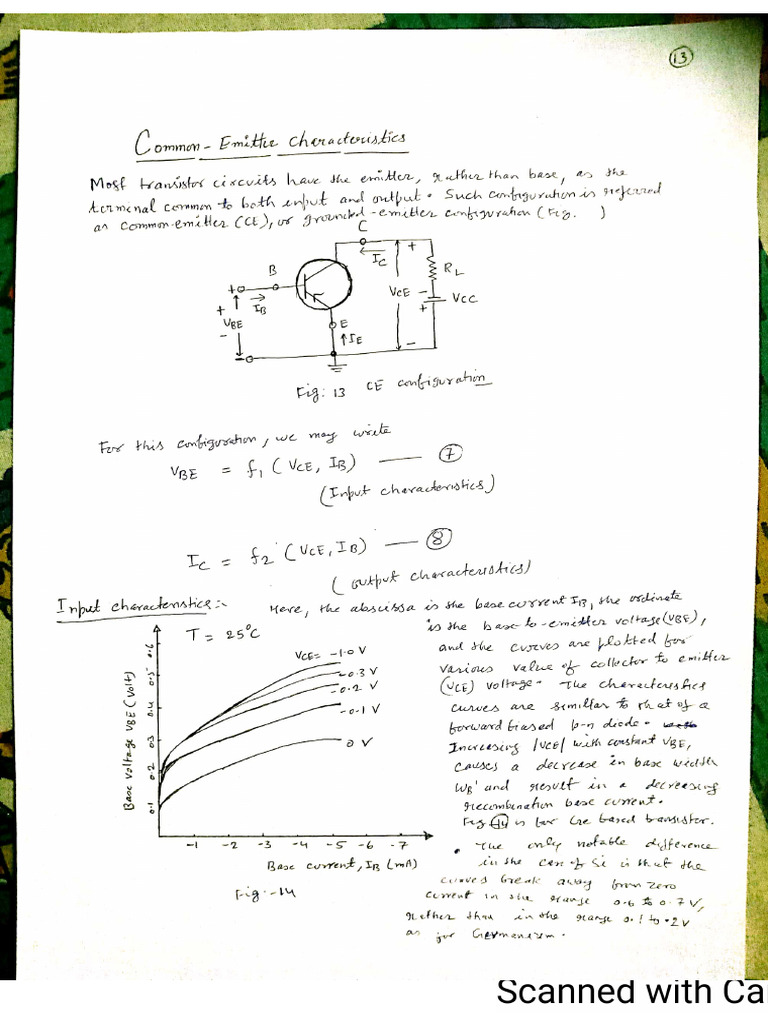 13
Common-Emitter Characteristics
Most transistor circuits have the emitter, rather than base, as the
terminal common to both input and output. Such configuration is referred
as common-emitter (CE), or grounded-emitter configuration (Fig. )
C
B
IC
+
RL
+
IB
VCE
-
VCC
+
VBE
-
+
E
IE
-
-
Fig: 13 CE configuration
For this configuration, we may write
VBE = f1 (VCE, IB) — 7
(Input characteristics)
IC = f2 (VCE, IB) — 8
(output characteristics)
Input characteristics:-
Here, the abscissa is the base current IB, the ordinate
is the base to-emitter voltage (VBE),
and the curves are plotted for
various value of collector to emitter
(VCE) voltage. The characteristics
curves are similar to that of a
forward biased p-n diode.
Increasing |VCE| with constant VBE,
causes a decrease in base width
WB' and result in a decreasing
recombination base current.
Fig 14 is for Ge based transistor.
• The only notable difference
in the case of Si is that the
curves break away from zero
current in the range 0.6 to 0.7 V,
rather than in the range 0.1 to .2V
as for Germanium.
T = 25°C
VCE= -1.0 V
-0.3 V
-0.2 V
-0.1 V
0 V
Base voltage VBE (Volt)
0.1 0.2 0.3 0.4 0.5 0.6
-1 -2 -3 -4 -5 -6 -7
Base current, IB (mA)
Fig:-14
Scanned with Ca